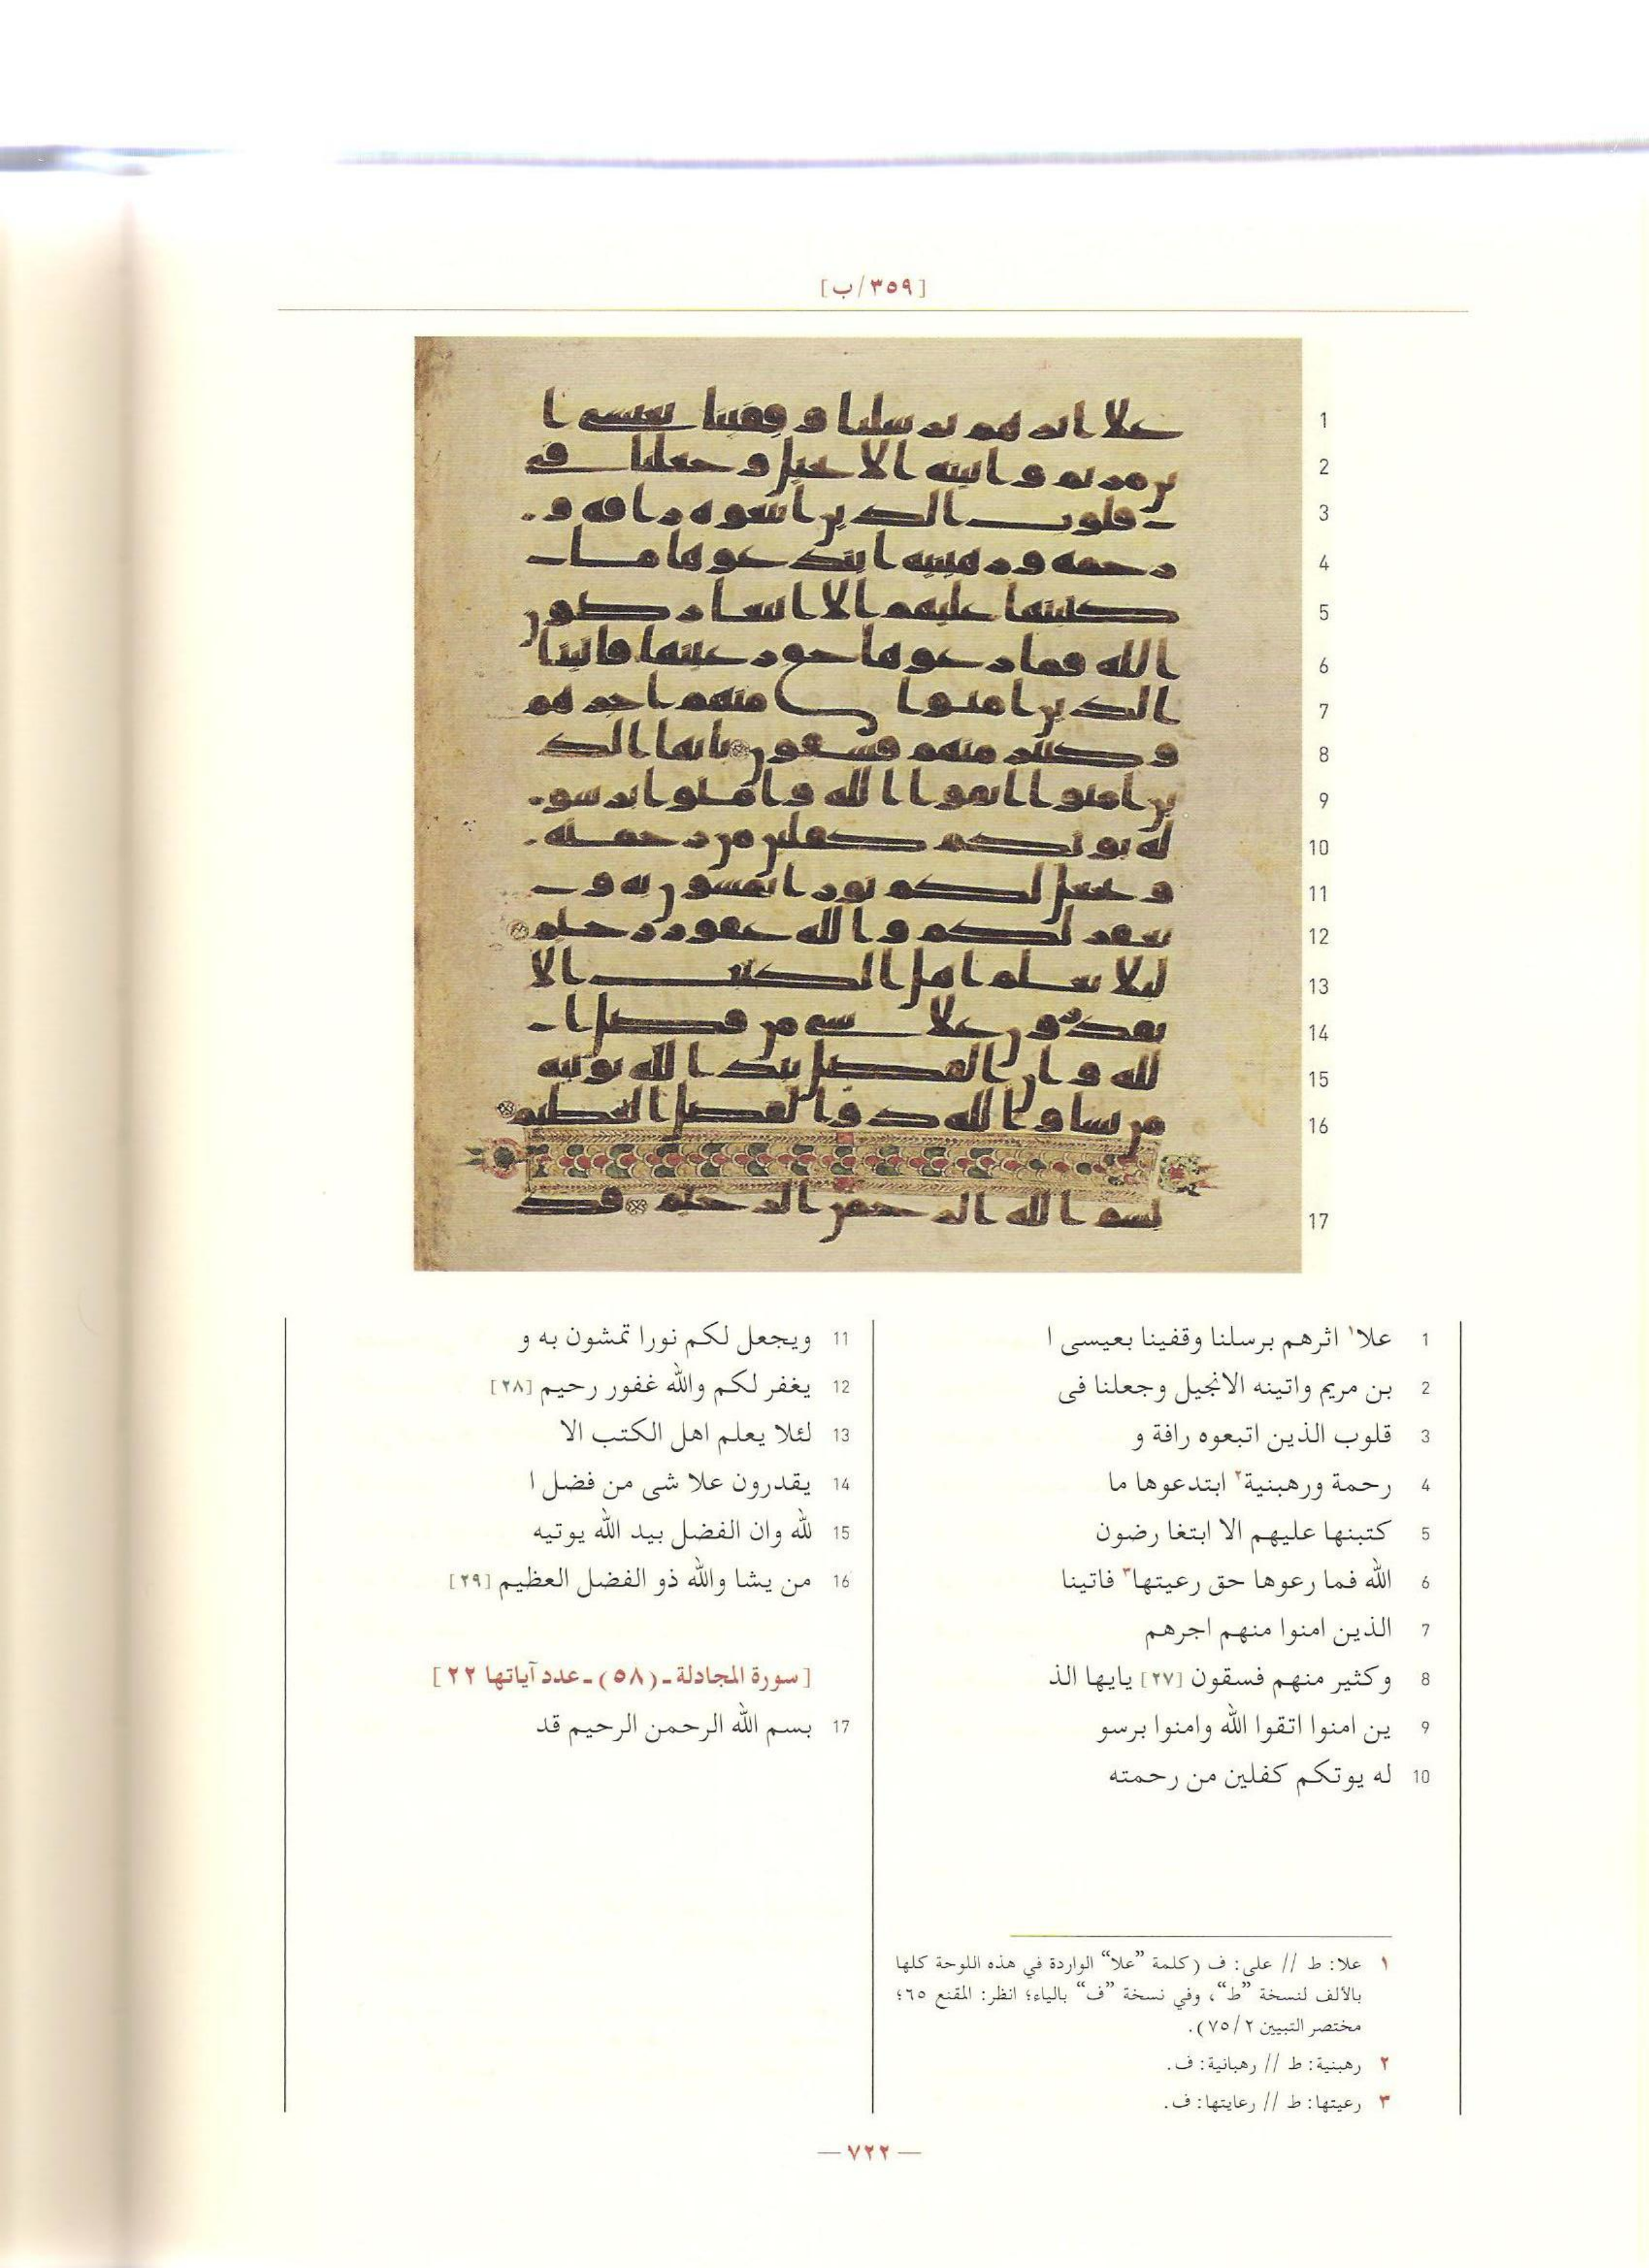 [٣٥٩/ب]
1 علا١ اثرهم برسلنا وقفينا بعيسى ا
2 بن مريم واتينه الانجيل وجعلنا فى
3 قلوب الذين اتبعوه رافة و
4 رحمة ورهبنية٢ ابتدعوها ما
5 كتبنها عليهم الا ابتغا رضون
6 الله فما رعوها حق رعيتها٣ فاتينا
7 الذين امنوا منهم اجرهم
8 وكثير منهم فسقون [٢٧] يايها الذ
9 ين امنوا اتقوا الله وامنوا برسو
10 له يوتكم كفلين من رحمته
11 ويجعل لكم نورا تمشون به و
12 يغفر لكم والله غفور رحيم [٢٨]
13 لئلا يعلم اهل الكتب الا
14 يقدرون علا شى من فضل ا
15 لله وان الفضل بيد الله يوتيه
16 من يشا والله ذو الفضل العظيم [٢٩]
[سورة المجادلة ـ (٥٨) ـ عدد آياتها ٢٢]
17 بسم الله الرحمن الرحيم قد
١ علا: ط // على: ف (كلمة ”علا“ الواردة في هذه اللوحة كلها
بالألف لنسخة ”ط“، وفي نسخة ”ف“ بالياء؛ انظر: المقنع ٦٥؛
مختصر التبيين ٧٥/٢).
٢ رهبنية: ط // رهبانية: ف.
٣ رعيتها: ط // رعايتها: ف.
— ٧٢٢ —